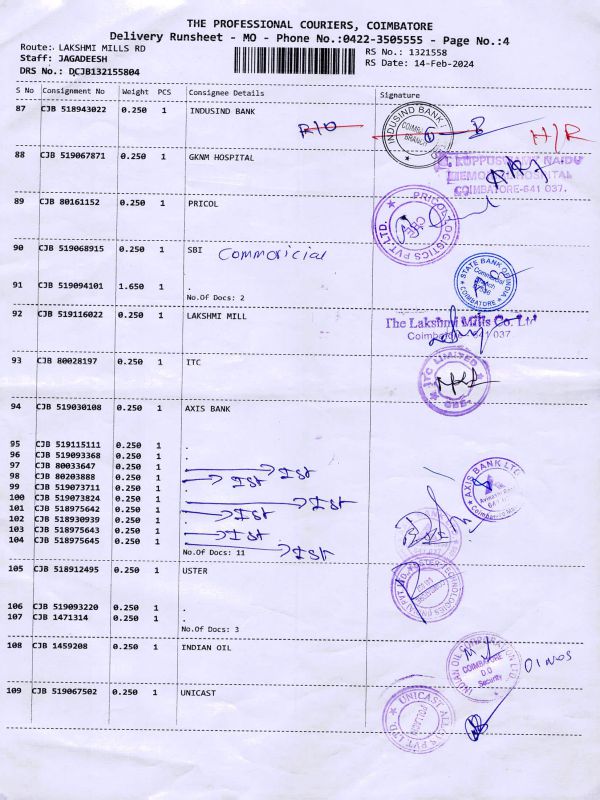 THE PROFESSIONAL COURIERS, COIMBATORE
Delivery Runsheet - MO - Phone No.:0422-3505555 - Page No.:4
Route:. LAKSHMI MILLS RD
RS No.: 1321558
Staff: JAGADEESH
RS Date: 14-Feb-2024
DRS No.: DCJB132155804
S No Consignment No Weight PCS Consignee Details Signature
87 CJB 518943022 0.250 1 INDUSIND BANK
H/R
88 CJB 519067871 0.250 1 GKNM HOSPITAL
KUPPUSWAMY NAIDU
MEMORIAL HOSPITAL
COIMBATORE-641 037.
89 CJB 80161152 0.250 1 PRICOL
PRICOL LOGISTICS PVT. LTD.
90 CJB 519068915 0.250 1 SBI Commoricial
STATE BANK OF INDIA
COIMBATORE
91 CJB 519094101 1.650 1 .
No.Of Docs: 2
92 CJB 519116022 0.250 1 LAKSHMI MILL
The Lakshmi Mills Co. Ltd
Coimbatore 641 037
93 CJB 80028197 0.250 1 ITC
ITC LIMITED
94 CJB 519030108 0.250 1 AXIS BANK
AXIS BANK LTD
95 CJB 519115111 0.250 1 .
96 CJB 519093368 0.250 1 .
97 CJB 80033647 0.250 1 . Ist
98 CJB 80203888 0.250 1 . Ist
99 CJB 519073711 0.250 1 .
100 CJB 519073824 0.250 1 . Ist
101 CJB 518975642 0.250 1 . Ist
102 CJB 518930939 0.250 1 .
103 CJB 518975643 0.250 1 . Ist
104 CJB 518975645 0.250 1 . Ist
No.Of Docs: 11
105 CJB 518912495 0.250 1 USTER
106 CJB 519093220 0.250 1 .
107 CJB 1471314 0.250 1 .
No.Of Docs: 3
108 CJB 1459208 0.250 1 INDIAN OIL
INDIAN OIL CORPORATION LTD.
COIMBATORE
D O
Security
109 CJB 519067502 0.250 1 UNICAST